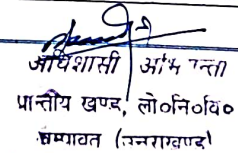 अधिशासी अभियन्ता
प्रान्तीय खण्ड, लो०नि०वि०
चम्पावत (उत्तराखण्ड)